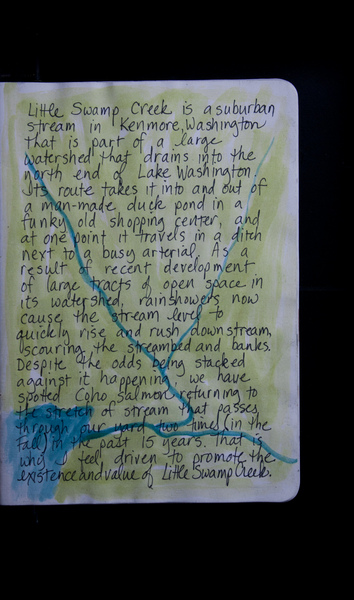 Little Swamp Creek is a suburban
stream in Kenmore, Washington
that is part of a large
watershed that drains into the
north end of Lake Washington.
Its route takes it into and out of
a man-made duck pond in a
funky old shopping center, and
at one point it travels in a ditch
next to a busy arterial. As a
result of recent development
of large tracts of open space in
its watershed, rainshowers now
cause the stream level to
quickly rise and rush downstream,
scouring the streambed and banks.
Despite the odds being stacked
against it happening, we have
spotted Coho salmon returning to
the stretch of stream that passes
through our yard two times (in the
Fall) in the past 15 years. That is
why I feel driven to promote the
existence and value of Little Swamp Creek.